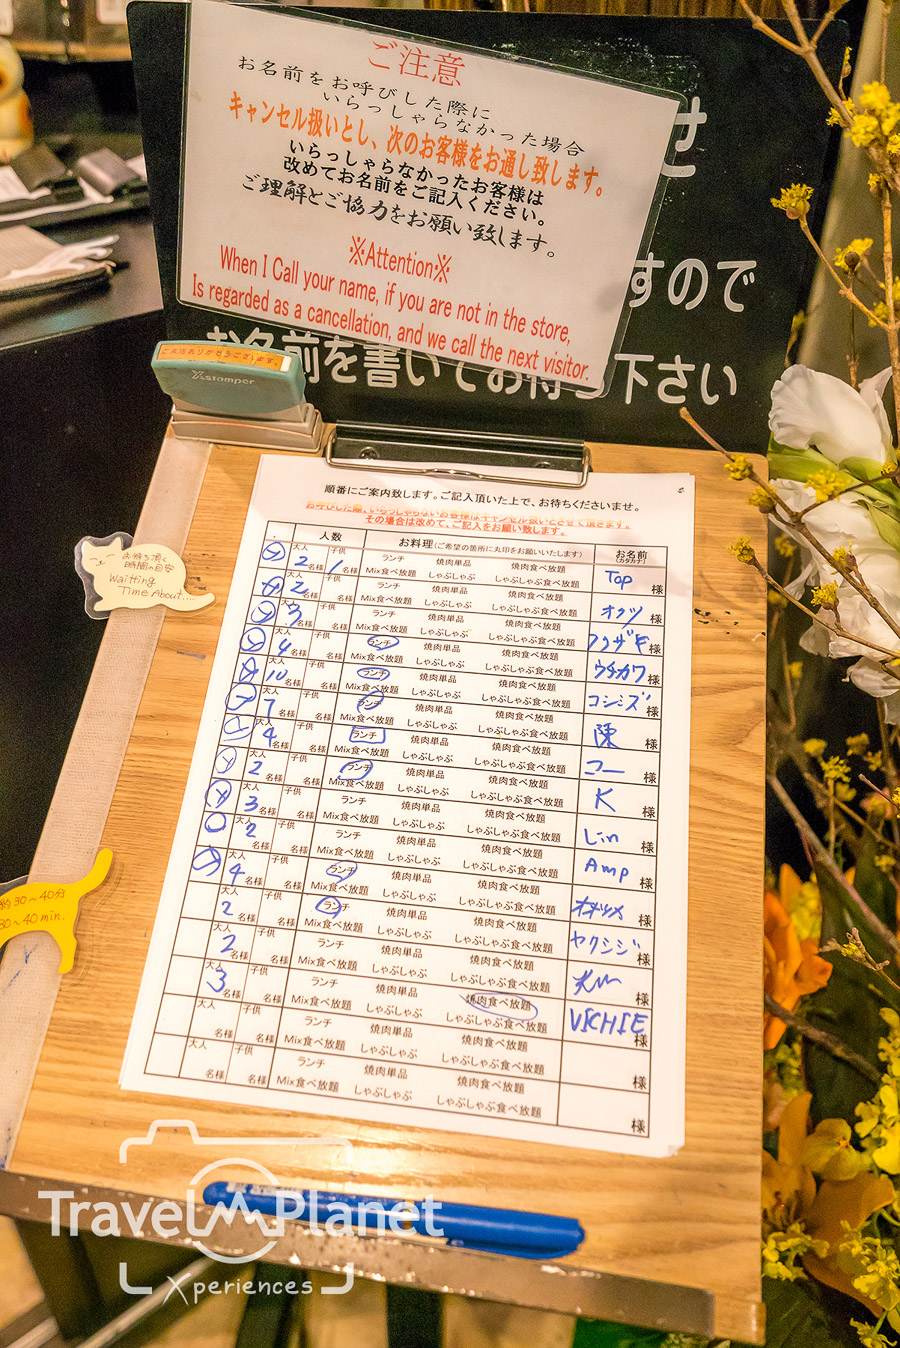 ご注意
お名前をお呼びした際に
いらっしゃらなかった場合
キャンセル扱いとし、次のお客様をお通し致します。
いらっしゃらなかったお客様は
改めてお名前をご記入ください。
ご理解とご協力をお願い致します。
※Attention※
When I Call your name, if you are not in the store,
Is regarded as a cancellation, and we call the next visitor.
せ
すので
お名前を書いてお待ち下さい
ご来店ありがとうございます。
Xstamper
順番にご案内致します。ご記入頂いた上で、お待ちくださいませ。
お呼びした際、いらっしゃらないお客様はキャンセル扱いとさせて頂きます。
その場合は改めて、ご記入をお願い致します。
人数 お料理(ご希望の箇所に丸印をお願いいたします) お名前
(カタカナ)
大人 2名様 子供 1名様 ランチ 焼肉単品 焼肉食べ放題 Mix食べ放題 しゃぶしゃぶ しゃぶしゃぶ食べ放題 Top 様
大人 2名様 子供 名様 ランチ 焼肉単品 焼肉食べ放題 Mix食べ放題 しゃぶしゃぶ しゃぶしゃぶ食べ放題 様
大人 3名様 子供 名様 ランチ 焼肉単品 焼肉食べ放題 Mix食べ放題 しゃぶしゃぶ しゃぶしゃぶ食べ放題 様
大人 4名様 子供 名様 ランチ 焼肉単品 焼肉食べ放題 Mix食べ放題 しゃぶしゃぶ しゃぶしゃぶ食べ放題 ウチカワ 様
大人 10名様 子供 名様 ランチ 焼肉単品 焼肉食べ放題 Mix食べ放題 しゃぶしゃぶ しゃぶしゃぶ食べ放題 コシミズ 様
大人 7名様 子供 名様 ランチ 焼肉単品 焼肉食べ放題 Mix食べ放題 しゃぶしゃぶ しゃぶしゃぶ食べ放題 陳 様
大人 4名様 子供 名様 ランチ 焼肉単品 焼肉食べ放題 Mix食べ放題 しゃぶしゃぶ しゃぶしゃぶ食べ放題 コー 様
大人 2名様 子供 名様 ランチ 焼肉単品 焼肉食べ放題 Mix食べ放題 しゃぶしゃぶ しゃぶしゃぶ食べ放題 K 様
大人 3名様 子供 名様 ランチ 焼肉単品 焼肉食べ放題 Mix食べ放題 しゃぶしゃぶ しゃぶしゃぶ食べ放題 Lin 様
大人 2名様 子供 名様 ランチ 焼肉単品 焼肉食べ放題 Mix食べ放題 しゃぶしゃぶ しゃぶしゃぶ食べ放題 Amp 様
大人 4名様 子供 名様 ランチ 焼肉単品 焼肉食べ放題 Mix食べ放題 しゃぶしゃぶ しゃぶしゃぶ食べ放題 様
大人 2名様 子供 名様 ランチ 焼肉単品 焼肉食べ放題 Mix食べ放題 しゃぶしゃぶ しゃぶしゃぶ食べ放題 ヤクシジ 様
大人 2名様 子供 名様 ランチ 焼肉単品 焼肉食べ放題 Mix食べ放題 しゃぶしゃぶ しゃぶしゃぶ食べ放題 様
大人 3名様 子供 名様 ランチ 焼肉単品 焼肉食べ放題 Mix食べ放題 しゃぶしゃぶ しゃぶしゃぶ食べ放題 VICHIE 様
大人 名様 子供 名様 ランチ 焼肉単品 焼肉食べ放題 Mix食べ放題 しゃぶしゃぶ しゃぶしゃぶ食べ放題 様
大人 名様 子供 名様 ランチ 焼肉単品 焼肉食べ放題 Mix食べ放題 しゃぶしゃぶ しゃぶしゃぶ食べ放題 様
お待ち頂く
時間の目安
Waitting
Time About....
約30～40分
30～40min.
Travel Planet
Xperiences